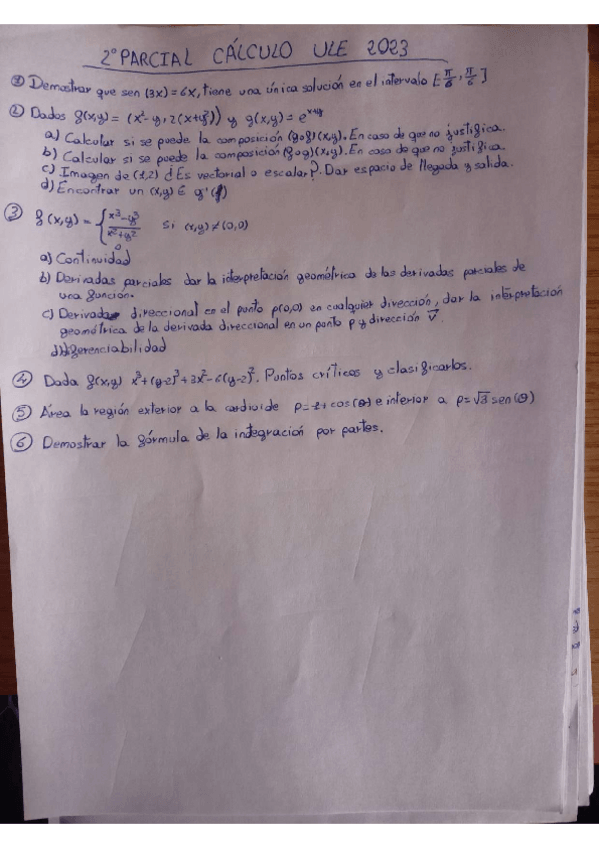 2º PARCIAL CÁLCULO ULE 2023
① Demostrar que sen (3x) = 6x, tiene una única solución en el intervalo [-π/6, π/6]
② Dados f(x,y) = (x²-y, 2(x+y²)) y g(x,y) = e^(x+y)
a) Calcular si se puede la composición (g∘f)(x,y). En caso de que no justifica.
b) Calcular si se puede la composición (f∘g)(x,y). En caso de que no justifica.
c) Imagen de (1,2) ¿Es vectorial o escalar?. Dar espacio de llegada y salida.
d) Encontrar un (x,y) ∈
③ f(x,y) = { x³-y³/x²+y² si (x,y) ≠ (0,0)
0
a) Continuidad
b) Derivadas parciales dar la interpretación geométrica de las derivadas parciales de
una función.
c) Derivada direccional en el punto p(0,0) en cualquier dirección, dar la interpretación
geométrica de la derivada direccional en un punto p y dirección v⃗.
d) diferenciabilidad
④ Dada f(x,y) x³+(y-2)³+3x²-6(y-2)². Puntos críticos y clasificarlos.
⑤ Área la región exterior a la cardioide ρ=1+cos(θ) e interior a ρ=√3 sen(θ)
⑥ Demostrar la fórmula de la integración por partes.